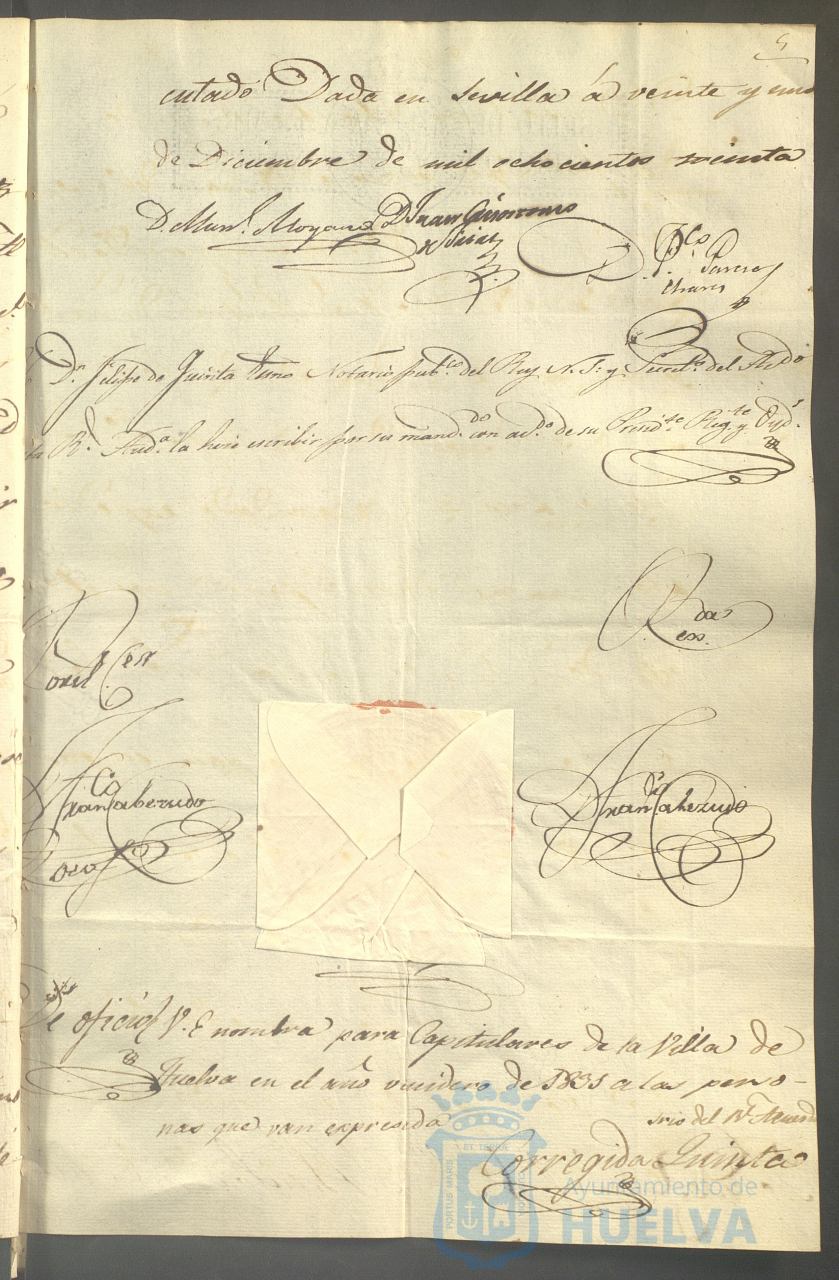 5
cutado Dada en Sevilla á veinte y uno
de Diciembre de mil ochocientos treinta
D. Man.l Moyano D. Juan Geronimo
D. Fco. Pareja
Chaves
D.n Felipe de Quinta Notario pub.co del Rey N. S.r y Secret.o del Acdo
la R.l Aud.a la hice escribir por su mand.do con acd.o de su Presid.te Reg.te y Oyd.s
Rda
Fran.co Cabezudo
Fran.co Cabezudo
De oficio V. E nombra para Capitulares de la Villa de
Huelva en el año venidero de 1831 a las perso-
nas que van expresada
Srio del R.l Acuerdo
Corregida Quinta
PORTUS MARIS
ET TERRE
CUSTODIA
Ayuntamiento de
HUELVA